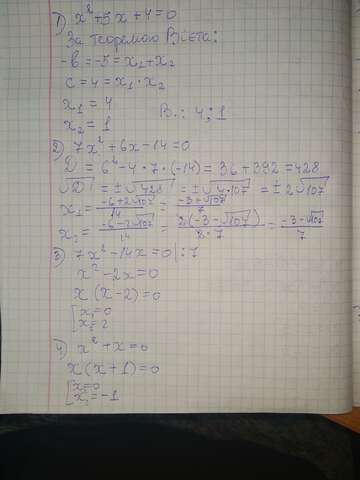 1) x²+5x+4=0
За теоремою Вієта:
-b=-5=x₁+x₂
c=4=x₁·x₂
x₁=4
x₂=1 В.: 4;1
2) 7x²+6x-14=0
D=6²-4·7·(-14)=36+392=428
√D=±√428=±√4·107=±2√107
x₁=(-6+2√107)/14=(-3+√107)/7
x₂=(-6-2√107)/14=2(-3-√107)/2·7=(-3-√107)/7
3) 7x²-14x=0|:7
x²-2x=0
x(x-2)=0
[x₁=0
x₂=2
4) x²+x=0
x(x+1)=0
[x₁=0
x₂=-1